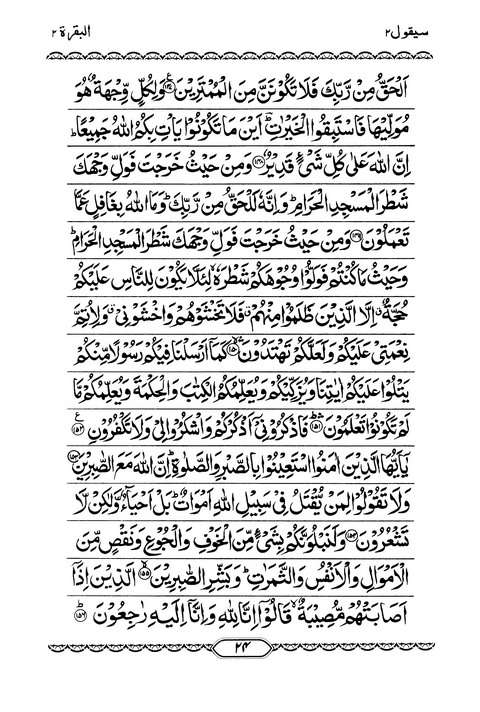 سيقول ٢
البقرة ٢
اَلْحَقُّ مِنْ رَّبِّكَ فَلَا تَكُوْنَنَّ مِنَ الْمُمْتَرِيْنَ ﴿١٤٧﴾ وَلِكُلٍّ وِّجْهَةٌ هُوَ
مُوَلِّيْهَا فَاسْتَبِقُوا الْخَيْرٰتِ ؕ اَيْنَ مَا تَكُوْنُوْا يَاْتِ بِكُمُ اللّٰهُ جَمِيْعًا ؕ
اِنَّ اللّٰهَ عَلٰى كُلِّ شَيْءٍ قَدِيْرٌ ﴿١٤٨﴾ وَمِنْ حَيْثُ خَرَجْتَ فَوَلِّ وَجْهَكَ
شَطْرَ الْمَسْجِدِ الْحَرَامِ ؕ وَاِنَّهٗ لَلْحَقُّ مِنْ رَّبِّكَ ؕ وَمَا اللّٰهُ بِغَافِلٍ عَمَّا
تَعْمَلُوْنَ ﴿١٤٩﴾ وَمِنْ حَيْثُ خَرَجْتَ فَوَلِّ وَجْهَكَ شَطْرَ الْمَسْجِدِ الْحَرَامِ ؕ
وَحَيْثُ مَا كُنْتُمْ فَوَلُّوْا وُجُوْهَكُمْ شَطْرَهٗ ۙ لِئَلَّا يَكُوْنَ لِلنَّاسِ عَلَيْكُمْ
حُجَّةٌ ۙ اِلَّا الَّذِيْنَ ظَلَمُوْا مِنْهُمْ ۗ فَلَا تَخْشَوْهُمْ وَاخْشَوْنِيْ ۗ وَلِاُتِمَّ
نِعْمَتِيْ عَلَيْكُمْ وَلَعَلَّكُمْ تَهْتَدُوْنَ ﴿١٥٠﴾ كَمَآ اَرْسَلْنَا فِيْكُمْ رَسُوْلًا مِّنْكُمْ
يَتْلُوْا عَلَيْكُمْ اٰيٰتِنَا وَيُزَكِّيْكُمْ وَيُعَلِّمُكُمُ الْكِتٰبَ وَالْحِكْمَةَ وَيُعَلِّمُكُمْ مَّا
لَمْ تَكُوْنُوْا تَعْلَمُوْنَ ﴿١٥١﴾ فَاذْكُرُوْنِيْٓ اَذْكُرْكُمْ وَاشْكُرُوْا لِيْ وَلَا تَكْفُرُوْنِ ﴿١٥٢﴾
يٰٓاَيُّهَا الَّذِيْنَ اٰمَنُوا اسْتَعِيْنُوْا بِالصَّبْرِ وَالصَّلٰوةِ ؕ اِنَّ اللّٰهَ مَعَ الصّٰبِرِيْنَ ﴿١٥٣﴾
وَلَا تَقُوْلُوْا لِمَنْ يُّقْتَلُ فِيْ سَبِيْلِ اللّٰهِ اَمْوَاتٌ ؕ بَلْ اَحْيَآءٌ وَّلٰكِنْ لَّا
تَشْعُرُوْنَ ﴿١٥٤﴾ وَلَنَبْلُوَنَّكُمْ بِشَيْءٍ مِّنَ الْخَوْفِ وَالْجُوْعِ وَنَقْصٍ مِّنَ
الْاَمْوَالِ وَالْاَنْفُسِ وَالثَّمَرٰتِ ؕ وَبَشِّرِ الصّٰبِرِيْنَ ﴿١٥٥﴾ الَّذِيْنَ اِذَآ
اَصَابَتْهُمْ مُّصِيْبَةٌ ۙ قَالُوْٓا اِنَّا لِلّٰهِ وَاِنَّآ اِلَيْهِ رٰجِعُوْنَ ؕ ﴿١٥٦﴾
٢٤